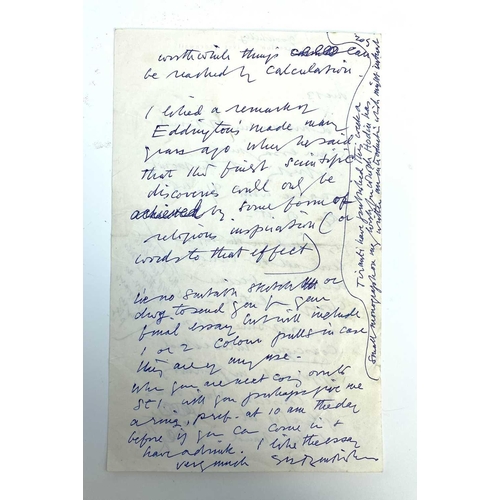 worthwhile things could can
be reached by calculation.
I liked a remark of
Eddington's made many
years ago when he said
that the finest scientific
discoveries could only be
achieved by some form of
religious inspiration (or
words to that effect)
I've no suitable sketch or
drwg. to send you for your
final essay but will include
1 or 2 colour pulls in case
they are of any use.
When you are next coming over to
SE1 will you perhaps give me
a ring, pref. at 10 am the day
before if you can come in &
have a drink. I like the essay
very much
Tiranti have published this week a
small monograph on my work for which Hodin has
written an introduction which might interest